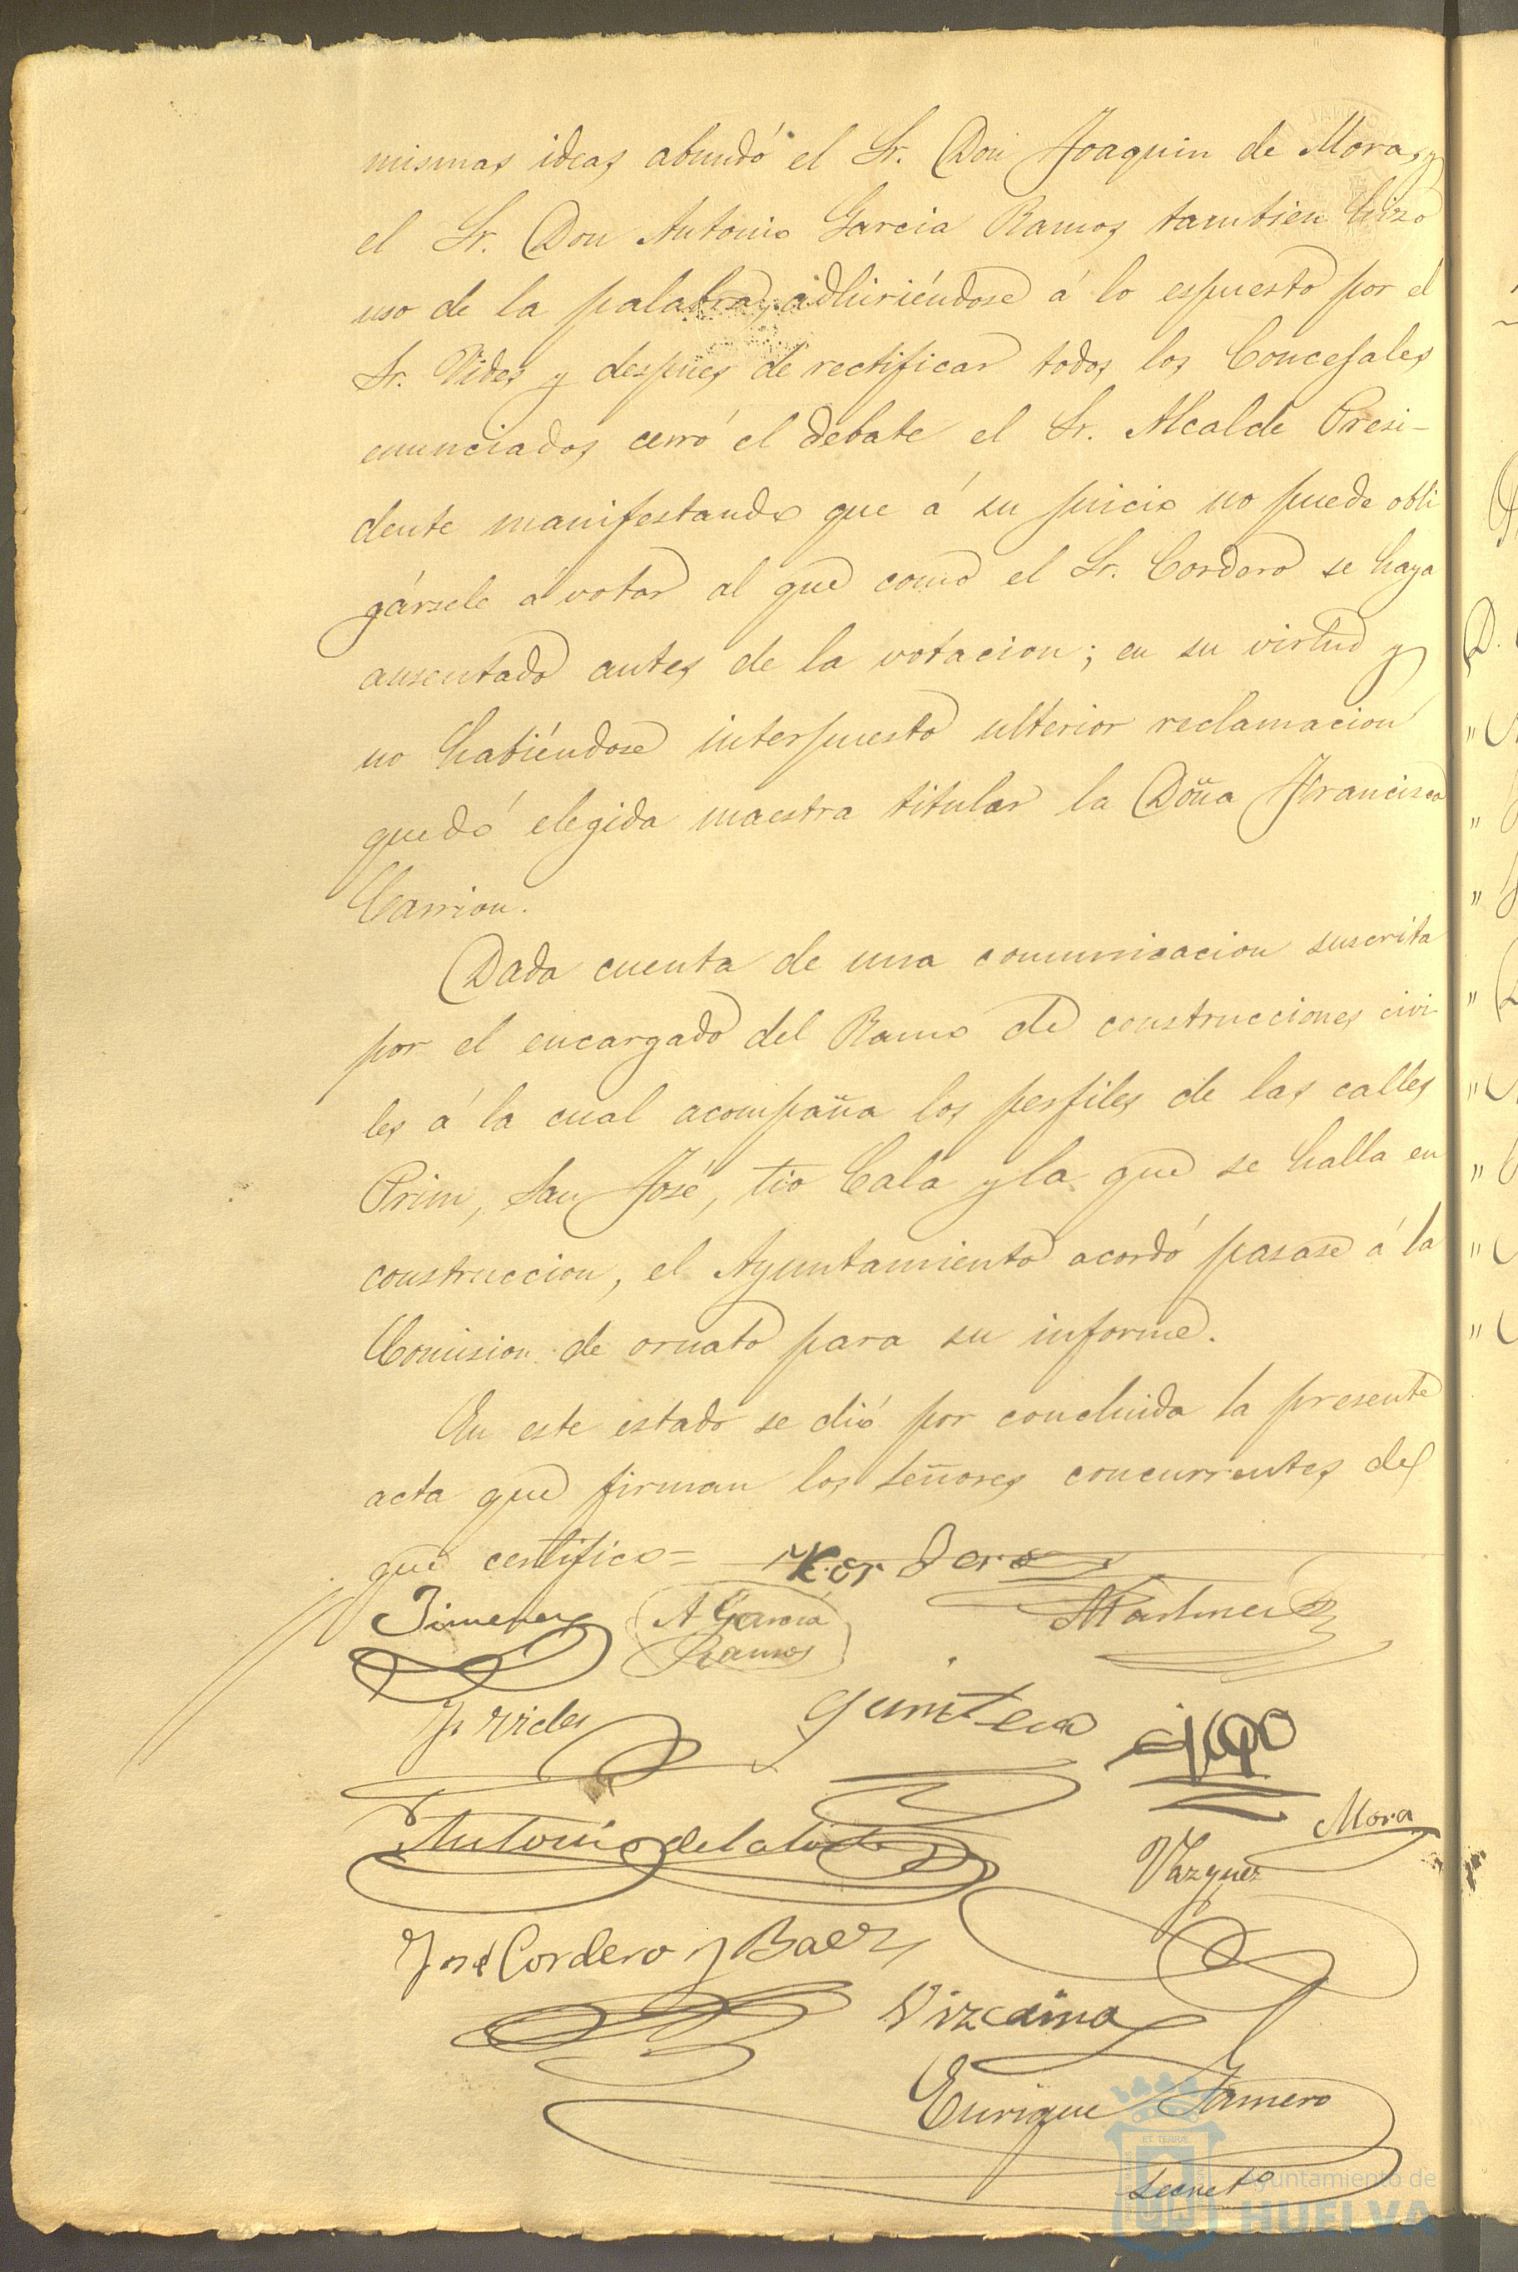 mismas ideas abundó el Sr. Don Joaquin de Mora, y
el Sr. Don Antonio Garcia Ramos tambien hizo
uso de la palabra, adhiriéndose á lo espuesto por el
Sr. Vides y despues de rectificar todos los Concejales
enunciados cerró el debate el Sr. Alcalde Presi-
dente manifestando que á su juicio no puede obli
gársele á votar al que como el Sr. Cordero se haya
ausentado antes de la votacion; en su virtud y
no habiéndose interpuesto ulterior reclamacion
quedó elegida maestra titular la Doña Francisca
Carrion.
Dada cuenta de una comunicacion suscrita
por el encargado del Ramo de construcciones civi-
les á la cual acompaña los perfiles de las calles
Prim, San José, tio Cala y la que se halla en
construccion, el Ayuntamiento acordó pasase á la
Comision de ornato para su informe.
En este estado se dió por concluida la presente
acta que firman los señores concurrentes de
que certifico=
Jimenez
A Garcia
Ramos
Martinez
J. Vides
Quintero
Mora
Antonio de la
Vazquez
José Cordero y Baez
Vizcaino
Enrique
Secret.º
Ayuntamiento de
HUELVA